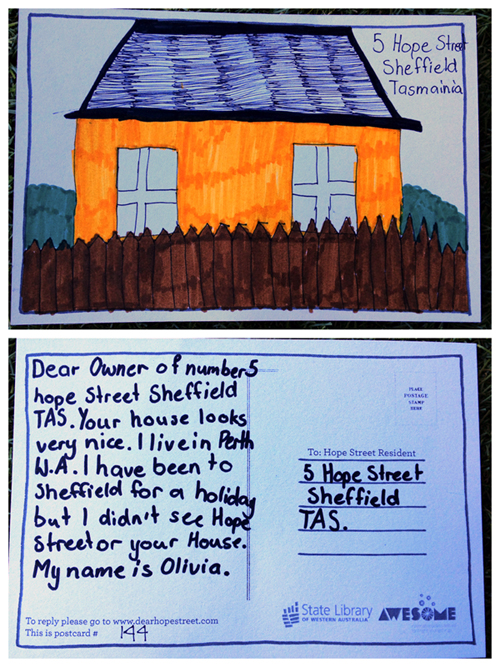 5 Hope Street
Sheffield
Tasmainia
Dear Owner of number5
hope Street Sheffield
TAS. Your house looks
very nice. I live in Perth
W.A. I have been to
Sheffield for a holiday
but I didn't see Hope
Street or your House.
My name is Olivia.
To reply please go to www.dearhopestreet.com
This is postcard # 144
PLACE
POSTAGE
STAMP
HERE
To: Hope Street Resident
5 Hope Street
Sheffield
TAS.
State Library
OF WESTERN AUSTRALIA
AWESOME